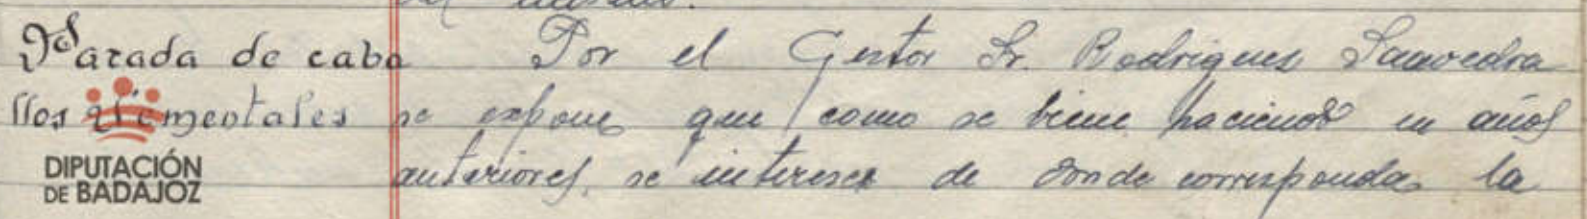 Parada de caba
llos sementales
DIPUTACIÓN
DE BADAJOZ
Por el Gestor Sr. Rodrigues Saavedra
se expone que como se biene haciendo en años
anteriores, se interese de donde corresponda la